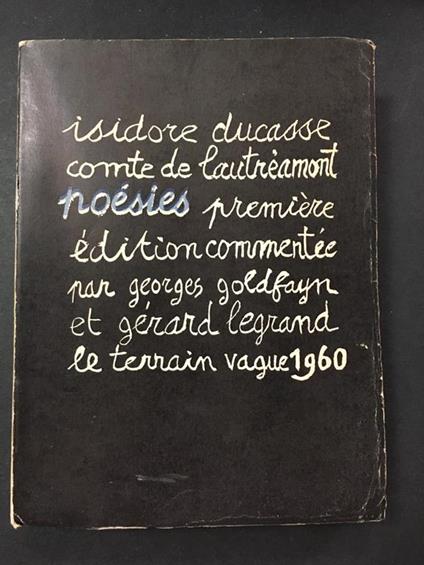 isidore ducasse
comte de lautréamont
poésies première
édition commentée
par georges goldfayn
et gérard legrand
le terrain vague 1960